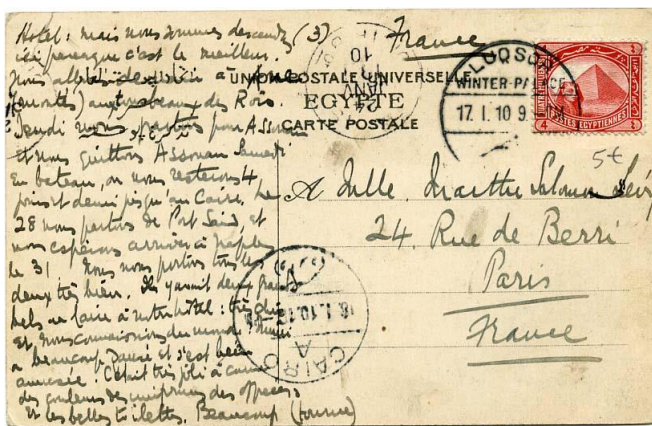 Hotel: mais nous sommes descendus (3)
ici parceque c'est le meilleur.
Nous allons
aux tombeaux des Rois.
Jeudi nous partons pour Assouan
et nous quittons Assouan Samedi
en bateau, où nous resterons 4
jours et demi jusqu'au Caire. Le
28 nous partons de Port Said, et
nous espérons arriver à Naples
le 31 Nous nous portons tous les
deux très bien. Il y avait deux grands
bals au Caire à notre hôtel: très chic
et nous connaissions du monde.
a beaucoup dansé et s'est bien
amusée: C'était très joli à cause
des couleurs des uniformes des officiers
et les belles toilettes. Beaucoup (tournez)
France
UNION POSTALE UNIVERSELLE
EGYPTE
CARTE POSTALE
JANV
10
LUQSOR
WINTER-PALACE
17. I. 10 9
POSTES EGYPTIENNES
4
5€
A Mlle. Marthe Salomon Lévy
24. Rue de Berri
Paris
France
18. I. 10.
CAIRO
A